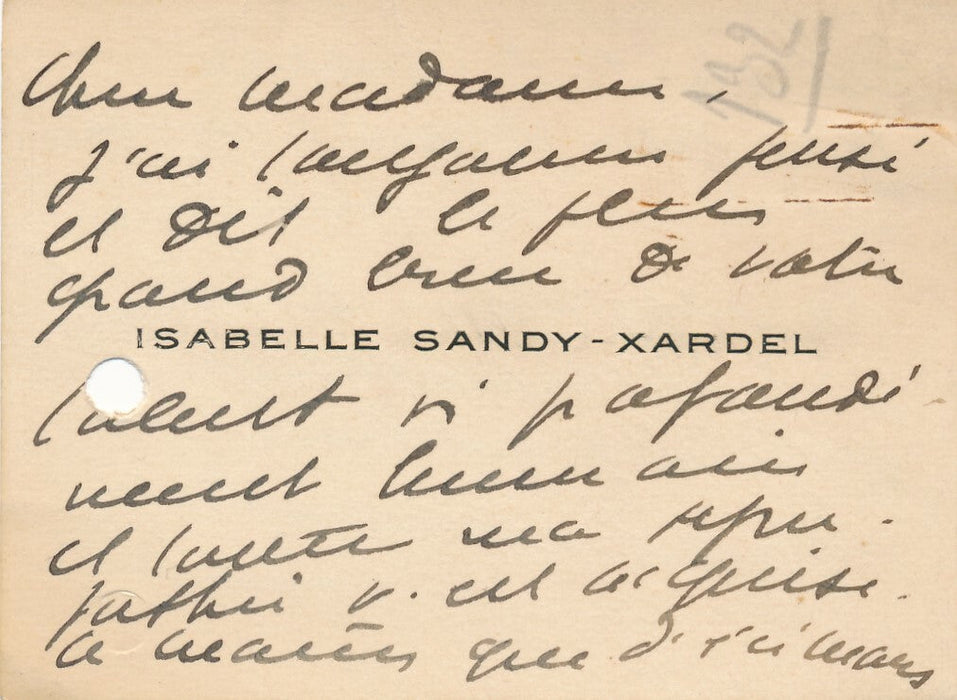 1932
Chère Madame,
J'ai longtemps pensé
et dit le plus
grand bien de votre
ISABELLE SANDY-XARDEL
talent si profondé-
ment humain
et toute ma sym-
pathie v. est acquise.